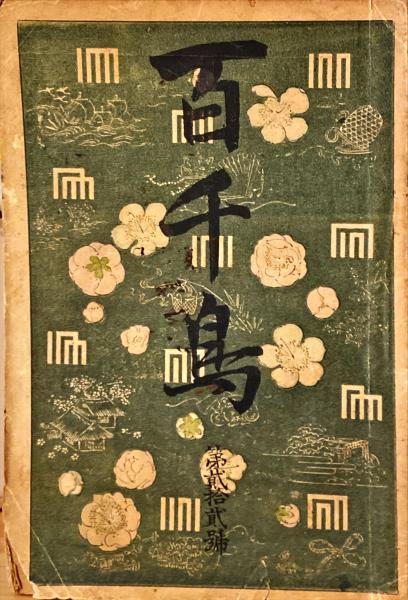 百千鳥
第貳拾貳號